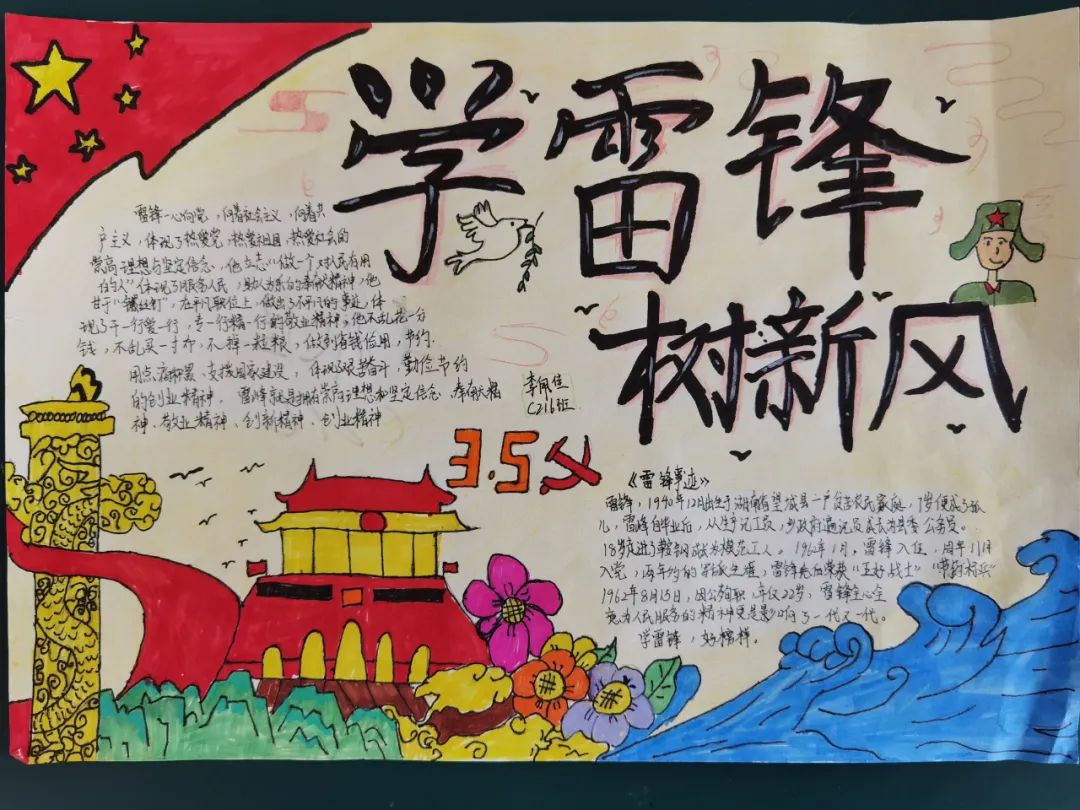 学雷锋
树新风
雷锋一心向党，向着社会主义，向着共
产主义，体现了热爱党，热爱祖国，热爱社会的
崇高理想与坚定信念，他立志"做一个对人民有用
的人"体现了服务人民，助人为乐的奉献精神，他
甘于"螺丝钉"，在平凡职位上，做出了不平凡的事迹，体
现了干一行爱一行，专一行精一行的敬业精神。他不乱花一分
钱，不乱买一寸布，不掉一粒粮，做到省钱俭用，节约.
用点滴积累，支援国家建设，体现了艰苦奋斗，勤俭节约
的创业精神。雷锋就是拥有崇高理想和坚定信念、奉献精
神、敬业精神、创新精神、创业精神
李佩佳
C216班
3.5
《雷锋事迹》
雷锋，1940年12月出生于湖南省望城县一户贫苦农民家庭，7岁便成了孤
儿，雷锋自毕业后，从生产记工员，乡政府通讯员 公务员。
18岁进了鞍钢 成为模范工人。1960年1月，雷锋入伍，同年11月
入党，两年约的军旅生涯，雷锋先后荣获"五好战士""节约标兵"
1962年8月15日，因公殉职，年仅22岁，雷锋全心全
意为人民服务的精神更是影响了一代又一代。
学雷锋，好榜样。